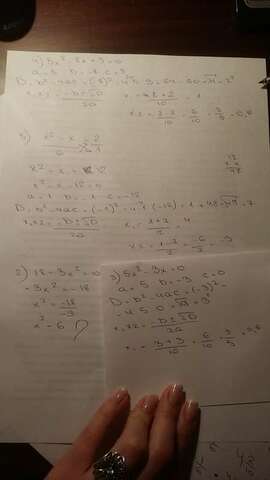 4) 5x² - 8x + 3 = 0
a = 5 b = -8 c = 3
D = b² - 4ac = (-8)² - 4·5·3 = 64 - 60 = √4 = 2
x₁,x₂ = -b ± √D / 2a
x₁ = 8 + 2 / 10 = 1
x₂ = 8 - 2 / 10 = 6/10 = 3/5 = 0,6
5) x² - x / 6 = 2/1
x² - x = 12
x² - x - 12 = 0
a = 1 b = -1 c = -12
D = b² - 4ac = (-1)² - 4·1·(-12) = 1 + 48 = √49 = 7
x₁,x₂ = -b ± √D / 2a
x₁ = 1 + 7 / 2 = 4
x₂ = 1 - 7 / 2 = -6/2 = -3
12
x 4
48
2) 18 - 3x² = 0
-3x² = -18
x² = -18 / -3
x² = 6 ?
3) 5x² - 3x = 0
a = 5 b = -3 c = 0
D = b² - 4ac = (-3)² -
- 4·5·0 = √9 = 3
x₁,x₂ = -b ± √D / 2a
x₁ = 3 + 3 / 10 = 6/10 = 3/5 = 0,6